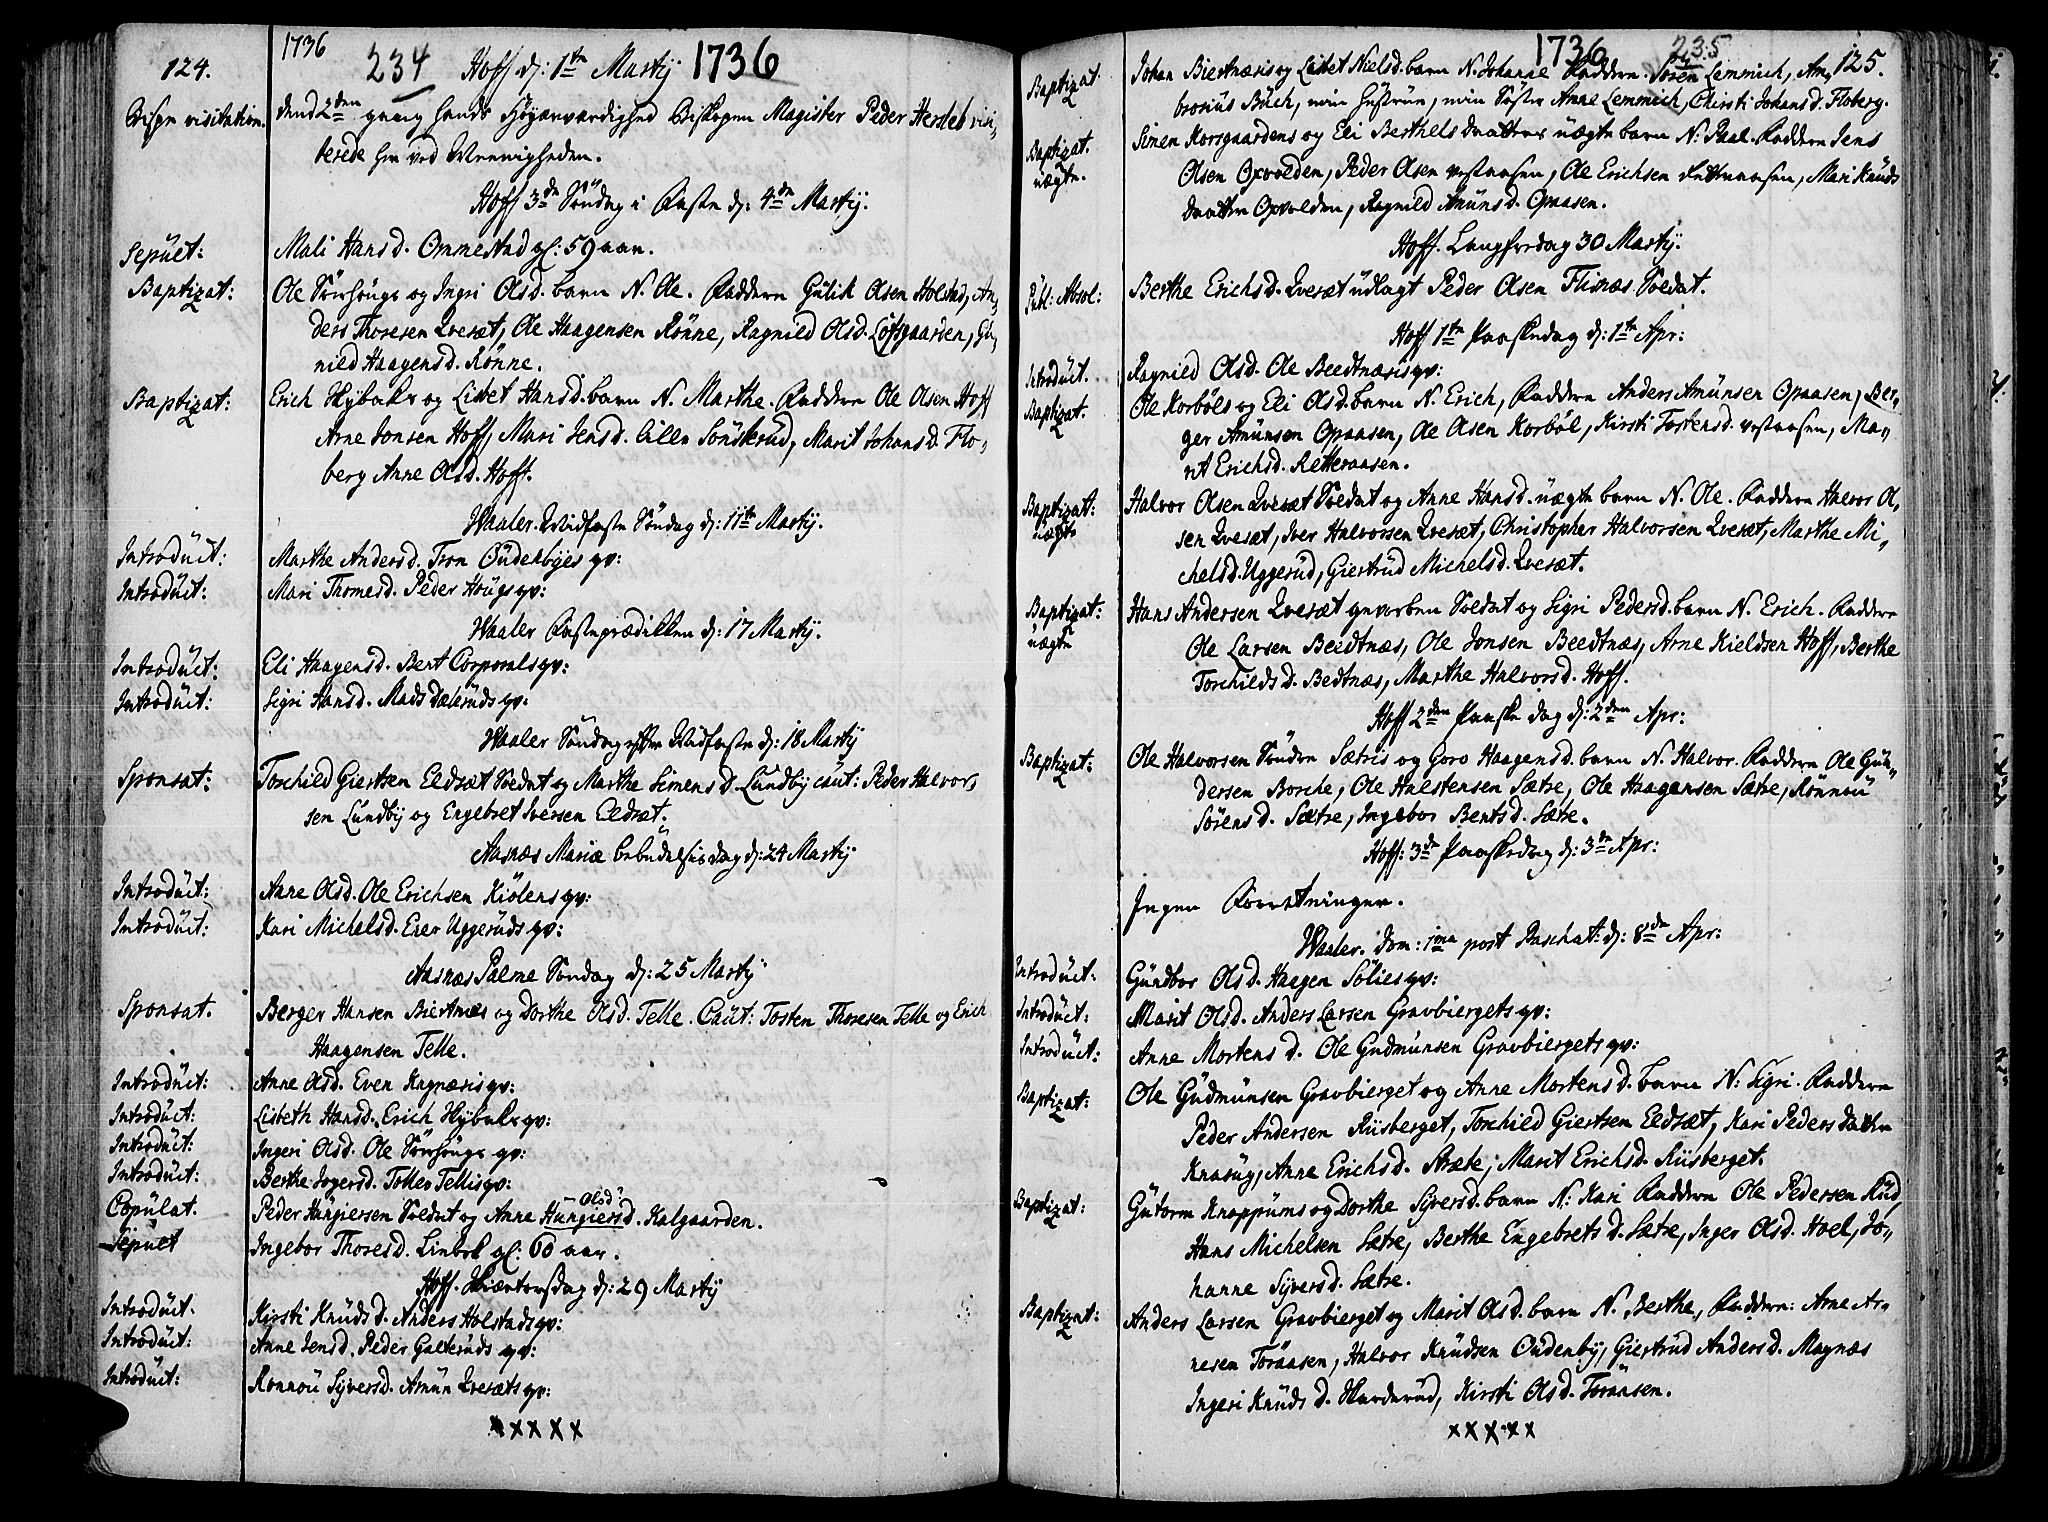 124. 1736 234 Hoff d: 1te Martij 1736
Bispe visitation. dend 2den gang hands Höyærværdighed Biskopen Magister Peder Hersleb visi,
terede her ved Menigheden.
Hoff 3de Söndag i Faste d: 4de Martij.
Sepült: Mali Hansd. Ommestad gl: 59 aar.
Baptizat: Ole Sörhöugs og Ingri Olsd. barn N. Ole. Faddere Gülik Olsen Holstad, An,
ders Thoresen Qveset, Ole Haagensen Rönne, Ragnild Olsd. Löfsgaarden, Gu,
nild Haagensd. Rönne.
Baptizat: Erich Hÿbaks og Lisbet Hansd. barn N. Marthe. Faddere Ole Olsen Hoff
Arne Jonsen Hoff, Mari Jensd. Lille Sönskrüd, Marit Johansd. Flo,
berg Anne Olsd. Hoff.
Waaler. Midfaste Söndag d: 11te Martij.
Introdüct: Marthe Andersd. Tron Oüdenbÿes qv:
Introdüct: Mari Thomesd. Peder Hoügs qv:
Waaler Fasteprædiken d: 17 Martij.
Introdüct: Eli Haagensd. Bert Corporals qv:
Introdüct: Sigri Hansd. Mads Dælerüds qv.
Waaler Söndag efter Midfaste d: 18 Martij
Sponsat: Torchild Giertsen Eldsæt Soldat og Marthe Simensd. Lundby caut: Peder Halvor,
sen Lundbÿ og Engebret Iversen Eldsæt.
Aasnæs Mariæ bebüdelsis dag d: 24 Martij
Introdüct: Anne Olsd. Ole Erichsen Kiölens qv:
Introdüct: Kari Michelsd. Even Uggerüds qv:
Aasnæs Palme Söndag d: 25 Martij
Sponsat. Berger Hansen Biertnæs og Dorthe Olsd. Telle. Caut: Tosten Thoresen Telle og Erich
Haagensen Telle.
Introdüct: Anne Olsd. Even Kagnæsis qv:
Introdüct: Lisbeth Hansd. Erich Hÿbaks qv:
Introdüct: Ingeri Olsd. Ole Sörhöugs qv:
Introdüct: Berthe Jogersd. Tollev Tellis qv:
Copülat. Peder Hüngiersen Soldat og Anne Hungiersd. Olsd Kalgaarden.
Sepült Ingebor Thoresd. Linbek gl: 60 aar.
Hoff. Skiærtorsdag d: 29 Martij
Introdüct. Kirsti Knüdsd. Anders Holstads qv:
Introdüct: Anne Jensd. Peder Galterüds qv:
Introdüct: Ronnou Sÿversd. Amün Qvesæts qv:
x x x x x
1736 235 125.
Baptizat Johan Biertnæsis og Lisbet Nielsd. barn N. Johanne Faddere. Sören Lemmich, Am,
brosius Büch, min hüstrüe, min Söster Anne Lemmich, Chirsti Johansd. Floberg.
Baptizat. nægte. Simen Korsgaardens og Eli Berthelsdaatters üægte barn N: Paal. Faddere Jens
Olsen Opvolden, Peder Olsen vestaasen, Ole Erichsen Retteraasen, Mari Knüds
daatter Opvolden, Ragnild Amünsd. Opaasen.
Hoff. Langfredag 30 Martij.
Publ: Absol: Berthe Erichsd. Qvesæt üdlagt Peder Olsen Flisnæs Soldat.
Hoff 1te Paaskedag d: 1te Apr:
Introdüct. Ragnild Olsd. Ole Beedtnæsis qv:
Baptizat. Ole Korböls og Eli Olsd. barn N. Erich, Faddere Anders Amünsen Opaasen, Ber,
ger Amünsen Opaasen, Ole Olsen Korböl, Kirsti Tostensd. vestaasen, Ma,
rit Erichsd. Retteraasen.
Baptizat: üægte Halvor Olsen Qvesæt Soldat og Anne Hansd. üægte barn N. Ole. Faddere Halvor Ol,
sen Qvesæt, Iver Halvorsen Qvesæt, Christopher Halvorsen Qvesæt, Marthe Mi,
chelsd. Uggerüd, Giertrüd Michelsd. Qvesæt.
Baptizat: üægte Hans Andersen Qvesæt gevorben Soldat og Sigri Pedersd. barn N. Erich. Faddere
Ole Larsen Beedtnæs, Ole Jonsen Beedtnæs, Arne Kieldsen Hoff, Berthe
Torchilds d. Bedtnæs, Marthe Halvorsd. Hoff.
Hoff 2den Paaske dag d: 2den Apr:
Baptizat: Ole Halvorsen Sönden Sætris og Goro Haagensd. barn N. Halvor. Faddere Ole Gün,
dersen Borche, Ole Halstensen Sætre, Ole Haagensen Sætre, Rönnoü
Sörensd. Sætre, Ingebor Bentsd. Sætre.
Hoff: 3de Paaskedag d: 3de Apr:
Ingen Forretninger.
Waaler. Dom: 1ma post Paschat: d: 8de Apr:
Introdüct. Gündbor Olsd. Haagen Sölies qv:
Introdüct: Marit Olsd. Anders Larsen Gravbiergets qv:
Introdüct: Anne Mortens d. Ole Gudmünsen Gravbiergets qv:
Baptizat: Ole Güdmünsen Gravbierget og Anne Mortensd. barn N: Sigri. Faddere
Peder Andersen Riisberget, Torchild Giertsen Eldsæt, Kari Peders datter
Knasüg, Anne Erichsd. Stræte, Marit Erichsd. Riisberget.
Baptizat: Gütorm Knappüms og Dorthe Sÿversd. barn N: Kari Faddere Ole Pedersen Rüd,
Hans Michelsen Sætre, Berthe Engebretsd. Sætre, Inger Olsd. Hoel, Jo,
hanne Sÿversd. Sætre.
Baptizat: Anders Larsen Gravbierget og Marit Olsd. barn N. Berthe, Faddere: Arne Ar,
nesen Toraasen, Halvor Knüdsen Oüdenbÿ, Giertrüd Andersd. Magnæs
Ingeri Knüds d. Skarderüd, Kirsti Olsd. Toraasen.
x x x x x